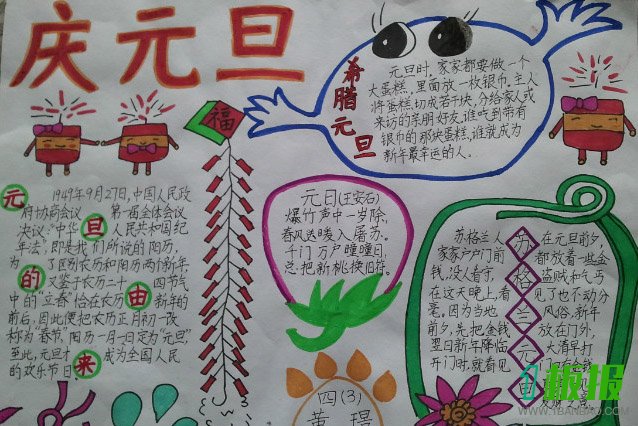 庆元旦
希腊元旦
元旦时，家家都要做一个
大蛋糕，里面放一枚银币，主人
将蛋糕切成若干块，分给家人或
来访的亲朋好友，谁吃到带有
银币的那块蛋糕，谁就成为
新年最幸运的人。
福
元旦的由来
1949年9月27日，中国人民政
府协商会议 第一届全体会议
决议：“中华 人民共和国纪
年法”，即是我们所说的阳历，
为 了区别农历和阳历两个新年
又鉴于农历二十 四节气
中的“立春”恰在农历 新年的
前后，因此便把农历正月初一改
称为“春节，阳历一月一日定为“元旦”，
至此，元旦才 成为全国人民
的欢乐节日。
元日(王安石)
爆竹声中一岁除，
春风送暖入屠苏。
千门万户瞳瞳日，
总把新桃换旧符。
苏格兰元旦
苏格兰人
家家户户门前
钱，没人看守，
在这天晚上，看
毫。因为当地
前夕，先把金钱
翌日新年降临
开门时，就看见
在元旦前夕，
都放着一些金
盗贼和乞丐
见了也不动分
风俗，新年
放在门外，
大清早打
四(3)
黄
1板报
WWW.1BANBAO.COM